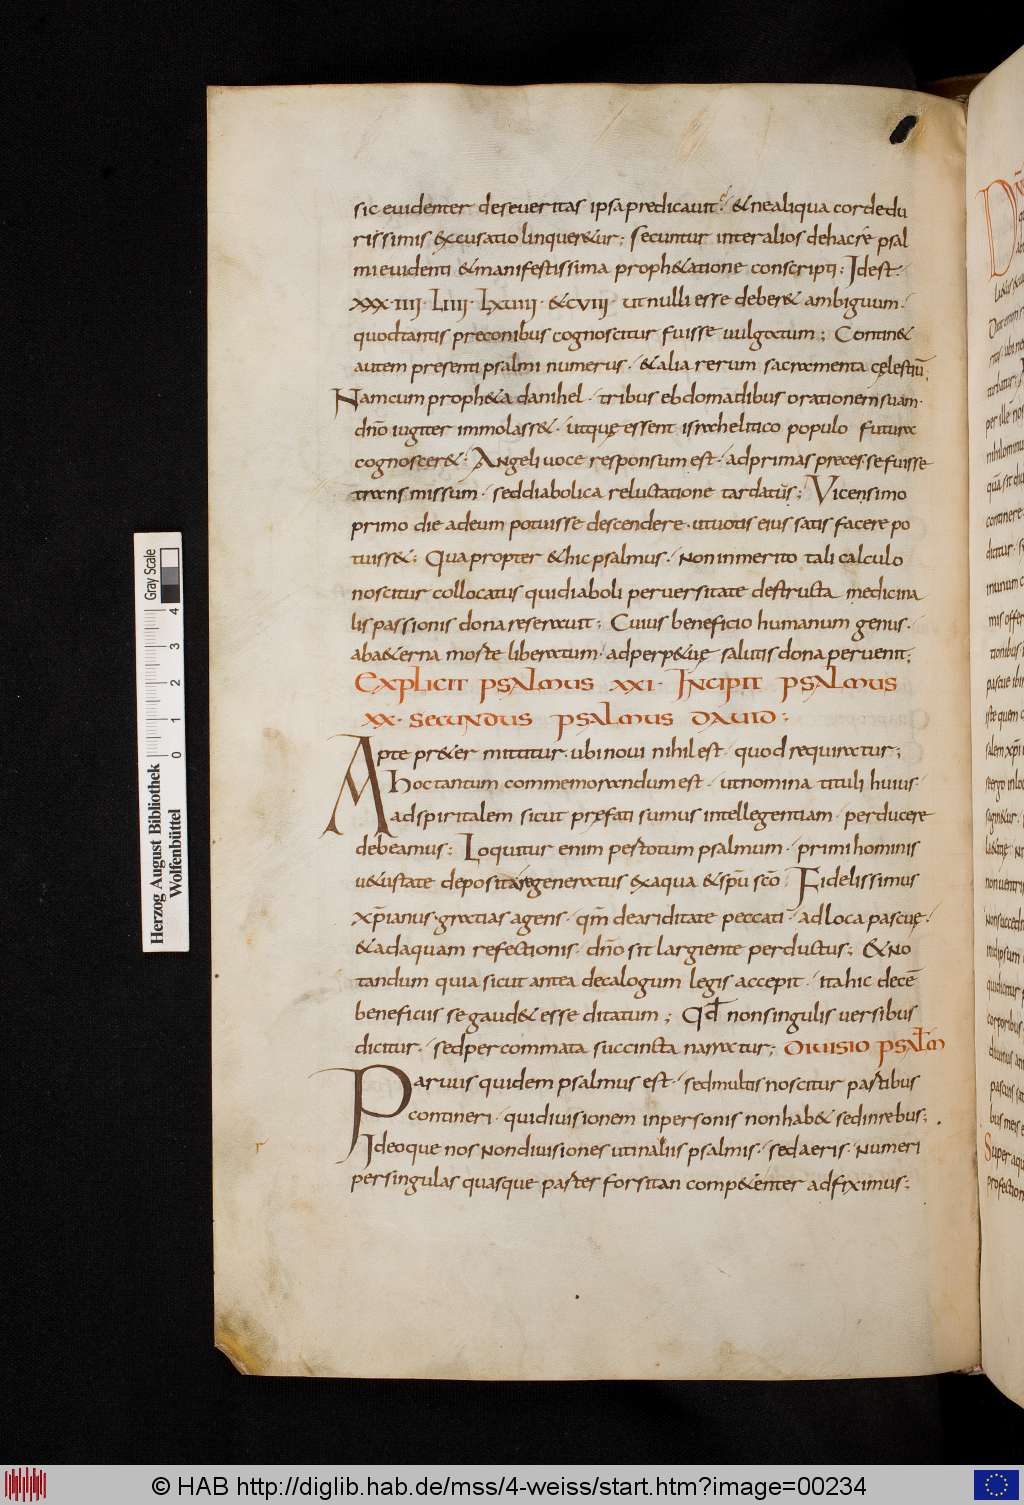 sic evidenter deseveritas ipsa predicavit. & nealiqua cordedu
rissimis excusatio linquer&ur; Secuntur interalios dehacre psal
mi evidenti & manifestissima proph&atione conscripti; Idest.
XXX·IIII· LIIII· LXVIIII· & CVIII· ut nulli esse deber& ambiguum.
quod tantis preconibus cognoscitur fuisse vulgatum; Contin&
autem presenti psalmi numerus. & alia rerum sacramenta cęlestiū;
Nam cum proph&a danihel. tribus ebdomadibus orationem suam.
dño iugiter immolass&. utque essent israhelitico populo futura
cognoscer&. Angeli voce responsum est. adprimas preces. se fuisse
trans missum. sed diabolica reluctatione tardatus; Vicensimo
primo die adeum potuisse descendere. utvotis eius satis facere po
tuiss&; Qua propter & hic psalmus. Non inmerito tali calculo
noscitur collocatus qui diaboli perversitate destructa medicina
lis passionis dona reseravit; Cuius beneficio humanum genus.
aba&erna morte liberatum. adperp&uę salutis dona pervenit;
EXPLICIT PSALMUS XXI. INCIPIT PSALMUS
XX. SECUNDUS PSALMUS DAVID;
Apte pr&er mittitur. ubi novi nihil est. quod requiratur;
Hoc tantum commemorandum est. ut nomina tituli huius.
ad spiritalem sicut pręfati sumus intellegentiam. perducere
debeamus; Loquitur enim per totum psalmum. primi hominis
v&ustate deposita regeneratus exaqua & spū scō. Fidelissimus
xp̄ianus. gratias agens. qm̄ deariditate peccati. ad loca pascuę.
& adaquam refectionis. dño sit largiente perductus; & no
tandum quia sicut antea decalogum legis accepit. ita hic decē
beneficiis se gaud& esse ditatum; Qd̄ non singulis versibus
dicitur. sed per commata succincta narratur; DIVISIO PSALM
Parvus quidem psalmus est. sed multis noscitur partibus
contineri. qui divisionem inpersonis non hab& sed in rebus;
Ideoque nos non divisiones ut in aliis psalmis. sed a eris. numeri
per singulas quasque partes forsitan comp&enter adfiximus;
Gray Scale
0 1 2 3 4
Herzog August Bibliothek
Wolfenbüttel
© HAB http://diglib.hab.de/mss/4-weiss/start.htm?image=00234